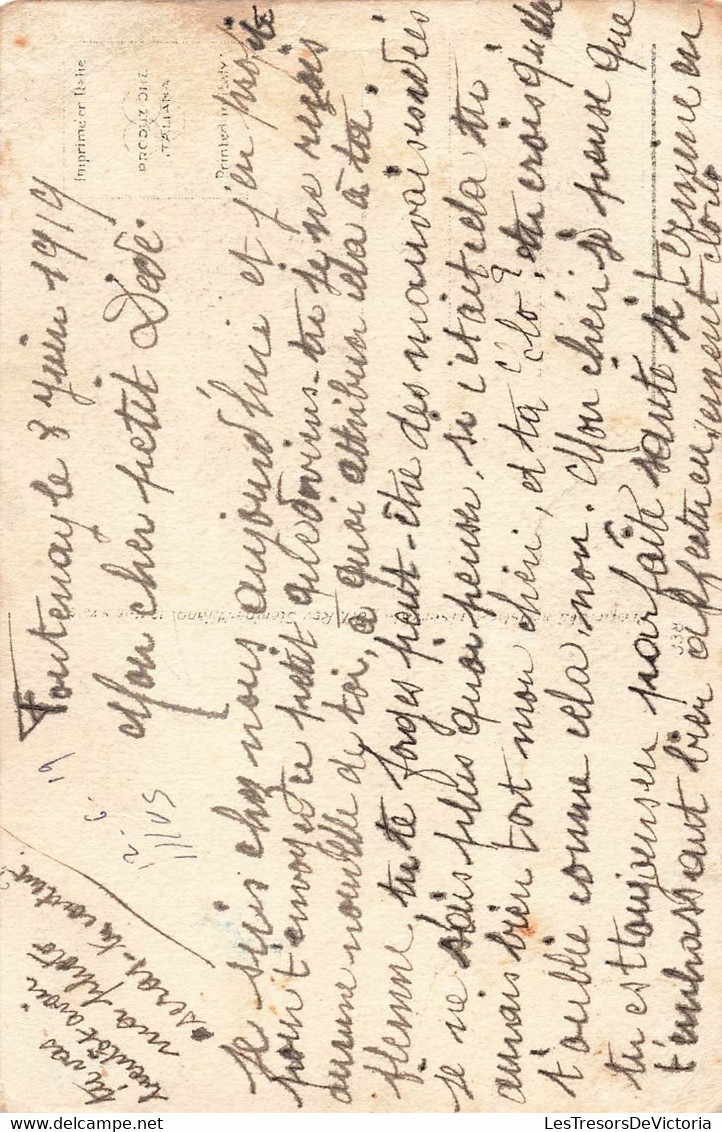 Fontenay le 8 Juin 1919
Mon cher petit Dédé.
Je suis chez nous aujourd'hui et j'en profite
pour t'envoyer ce petit que deviens-tu je ne reçois
aucune nouvelle de toi, a quoi attribuer cela à ta
flemme tu te forges peut-être des mauvaises idées
je ne sais plus quoi penser, si c'était cela tu
aurais bien tort mon chéri, et ta "Clo", tu crois qu'elle
t'oublie comme cela, non. Mon chéri je pense que
tu es toujours en parfaite santé je termine en
t'embrassant bien affectueusement Clo
Tu vas
bientôt avoir
ma photo
seras-tu content?
12. 6. 19
Imprimé en Italie
PRODUZIONE
ITALIANA
Printed in Italy
338
LesTresorsDeVictoria